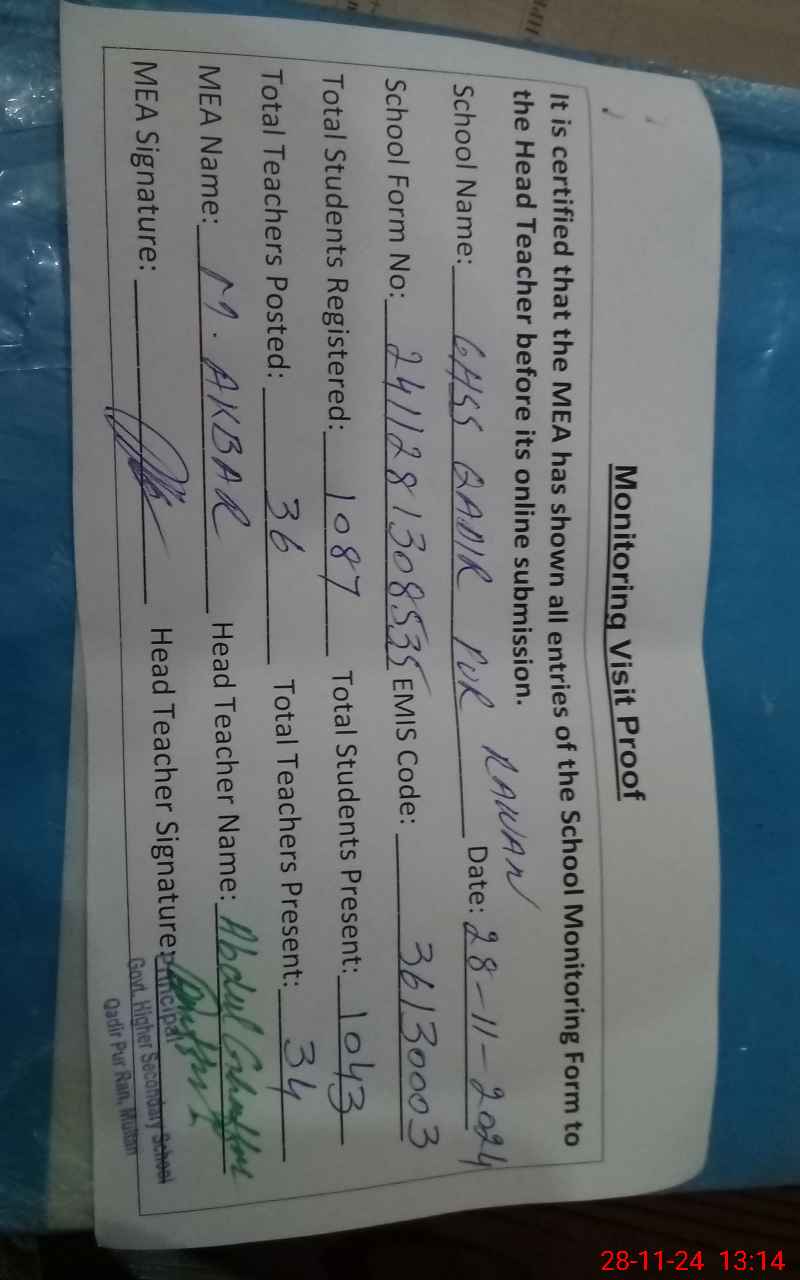 Monitoring Visit Proof
It is certified that the MEA has shown all entries of the School Monitoring Form to
the Head Teacher before its online submission.
School Name: GHSS QADIR PUR RAWAN Date: 28-11-2024
School Form No: 2411281308535 EMIS Code: 36130003
Total Students Registered: 1087 Total Students Present: 1043
Total Teachers Posted: 36 Total Teachers Present: 34
MEA Name: M. AKBAR Head Teacher Name: Abdul Ghaffar
MEA Signature: Head Teacher Signature:
Principal
Govt. Higher Secondary School
Qadir Pur Ran, Multan
28-11-24 13:14